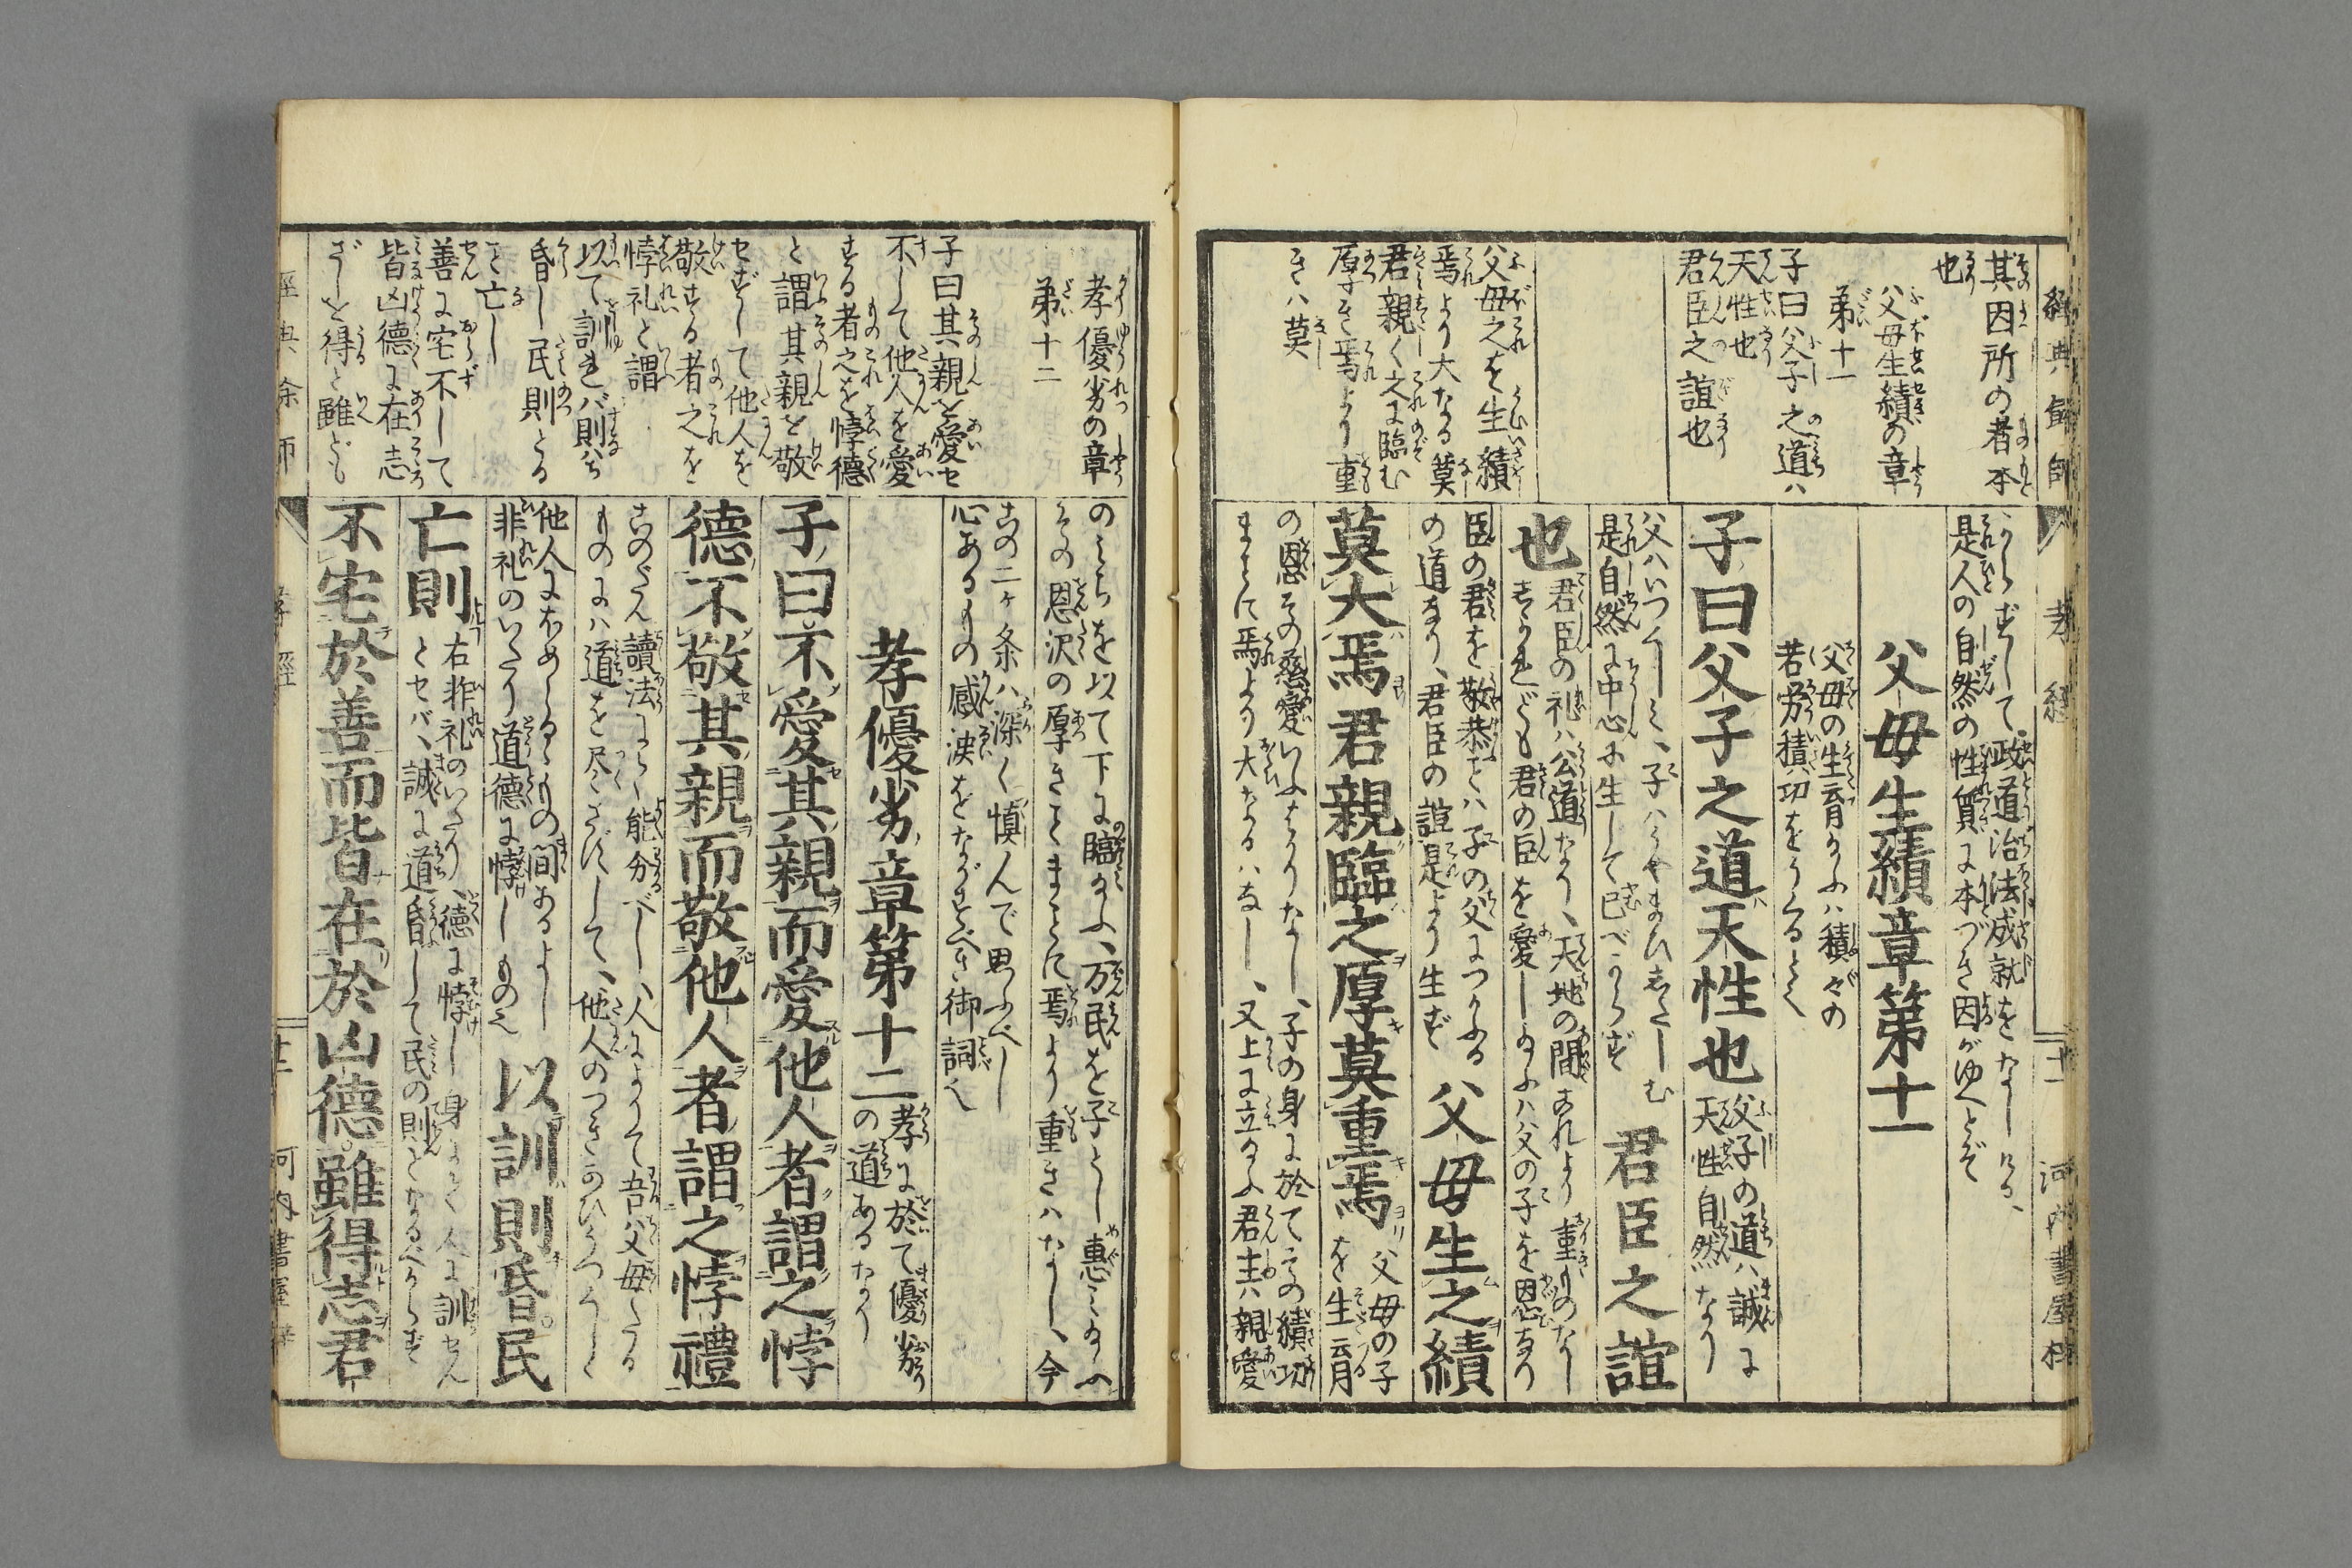 經典餘師
孝經
十一
河内書屋梓
其因所の者本
也
父母生績の章
第十一
子曰父子之道ハ
天性也
君臣之誼也
父母之を生績
焉より大なる莫
君親く之に臨む
厚き焉より重
きハ莫
からずして、政道治法成就をなしける、
是人の自然の性質に本づき因がゆへとぞ
父毋生績章第十一
父母の生育たふハ積々の
若労積功をうくるとく
子曰父子之道天性也
父子の道ハ誠に
天性自然なり
父ハいつくしミ、子ハうやまひしたしむ
是自然に中心に生して已べからず
君臣之誼
也
君臣の礼ハ公道なり、天地の間これより重きものなし
されども君の臣を愛し給ふハ父の子を恩なり
臣の君を敬恭とハ子の父につかふる
の道なり、君臣の誼是より生ず
父毋生之績
莫大焉君親臨之厚莫重焉
父母の子
を生育
の恩その慈愛いふはかりなし、子の身に於て之の績功
まことに焉より大なるハなし、又上に立給ふ君主ハ親愛
孝優劣の章
第十二
子曰其親を愛セ
不して他人を愛
する者之を悖德
と謂其親を敬
セずして他人を
敬する者之を
悖礼と謂
以て訓れバ則ハち
昏し民則とる
こと亡し
善に宅不して
皆凶德に在志
ざしを得と雖ども
のミちを以て下に臨給ふ、万民を子とし惠ミ給ふ
その恩沢の厚きことまことに焉より重きハなし、今
古の二ヶ条ハ深く慎んで思ふべし
心あるもの感涙をながすべき御詞也
孝優劣章第十二
孝に於て優劣
の道あるなり
子曰不愛其親而愛他人者謂之悖
德不敬其親而敬他人者謂之悖禮
古のぶん讀法にらく能分べし、人にありて吾父母たる
ものにハ道を尽さずして、他人のつきあひうつくしく
他人にほめらるゝもの間あるよし
非礼のいたり道德に悖しもの也
以訓則昏民
亡則
右非礼のいたり、德に悖し身にして人に訓せん
とセバ、誠に道昏して民の則となるべからず
不宅於善而皆在於凶德雖得志君
經典余師
孝經
十二
河内書屋梓